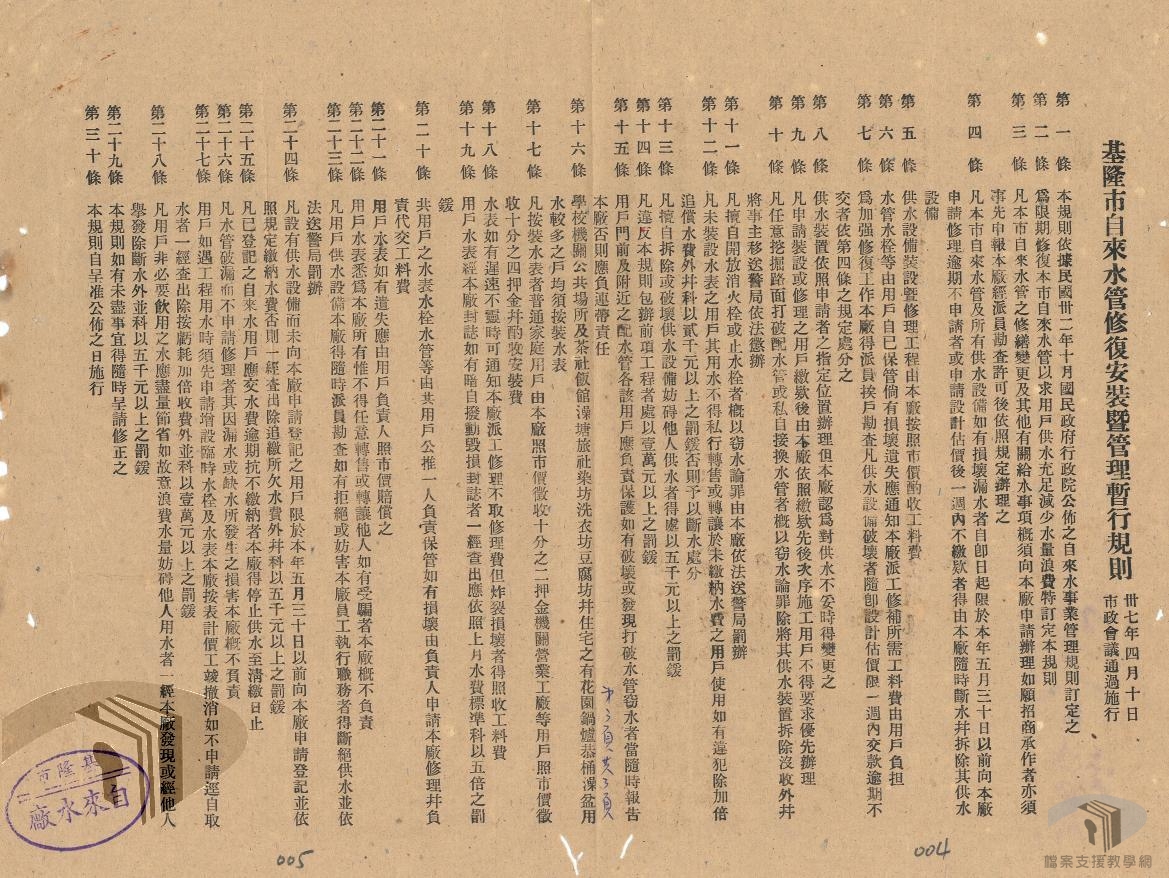 基隆市自來水管修復安裝暨管理暫行規則
卅七年四月十日
市政會議通過施行
第一條 本規則依據民國卅二年十月國民政府行政院公佈之自來水事業管理規則訂定之
第二條 為限期修復本市自來水管以求用戶供水充足減少水量浪費特訂定本規則
第三條 凡本市自來水管之修繕變更及其他有關給水事項概須向本廠申請辦理如願招商承作者亦須
事先申報本廠經派員勘查許可後依照規定辦理之
第四條 凡本市自來水管及所有供水設備如有損壞漏水者自卽日起限於本年五月三十日以前向本廠
申請修理逾期不申請者或申請設計估價後一週內不繳欵者得由本廠隨時斷水并拆除其供水
設備
第五條 供水設備裝設暨修理工程由本廠按照市價酌收工料費
第六條 水管水栓等由用戶自己保管倘有損壞遺失應通知本廠派工修補所需工料費由用戶負担
第七條 為加强修復工作本廠得派員挨戶勘查凡供水設備破壞者隨卽設計估價限一週內交款逾期不
交者依第四條之規定處分之
第八條 供水裝置依照申請者之指定位置辦理但本廠認為對供水不妥時得變更之
第九條 凡申請裝設或修理之用戶繳欵後由本廠依照繳欵先後次序施工用戶不得要求優先辦理
第十條 凡任意挖掘路面打破配水管或私自接換水管者概以窃水論罪除將其供水裝置拆除沒收外并
將事主移送警局依法懲辦
第十一條 凡擅自開放消火栓或止水栓者概以窃水論罪由本廠依法送警局罰辦
第十二條 凡未裝設水表之用戶其用水不得私行轉售或轉讓於未繳納水費之用戶使用如有違犯除加倍
追償水費外并科以貳千元以上之罰鍰否則予以斷水處分
第十三條 凡擅自拆除或破壞供水設備妨碍他人供水者得處以五千元以上之罰鍰
第十四條 凡違反本規則包辦前項工程者處以壹萬元以上之罰鍰
第十五條 用戶門前及附近之配水管各該用戶應負責保護如有破壞或發現打破水管窃水者當隨時報告
本廠否則應負連帶責任
第十六條 學校機關公共場所及茶社飯館澡塘旅社染坊洗衣坊豆腐坊并住宅之有花園鍋爐恭桶澡盆用
水較多之戶均須按裝水表
第十七條 凡按裝水表者普通家庭用戶由本廠照市價徵收十分之二押金機關營業工廠等用戶照市價徵
收十分之四押金并酌收安裝費
第十八條 水表如有遲速不靈時可通知本廠派工修理不取修理費但炸裂損壞者得照收工料費
第十九條 用戶水表經本廠封誌如有暗自撥動毀損封誌者一經查出應依照上月水費標準科以五倍之罰
鍰
第二十條 共用戶之水表水栓水管等由共用戶公推一人負責保管如有損壞由負責人申請本廠修理并負
責代交工料費
第二十一條 用戶水表如有遺失應由用戶負責人照市價賠償之
第二十二條 用戶水表悉為本廠所有惟不得任意轉售或轉讓他人如有受騙者本廠概不負責
第二十三條 凡用戶供水設備本廠得隨時派員勘查如有拒絕或妨害本廠員工執行職務者得斷絕供水並依
法送警局罰辦
第二十四條 凡設有供水設備而未向本廠申請登記之用戶限於本年五月三十日以前向本廠申請登記並依
照規定繳納水費否則一經查出除追繳所欠水費外并科以五千元以上之罰鍰
第二十五條 凡已登記之自來水用戶應交水費逾期抗不繳納者本廠得停止供水至清繳日止
第二十六條 凡水管破漏而不申請修理者其因漏水或缺水所發生之損害本廠概不負責
第二十七條 用戶如遇工程用水時須先申請增設臨時水栓及水表本廠按表計價工竣撤消如不申請逕自取
水者一經查出除按虧耗加倍收費外並科以壹萬元以上之罰鍰
第二十八條 凡用戶非必要飲用之水應盡量節省如故意浪費水量妨碍他人用水者一經本廠發現或經他人
舉發除斷水外並科以五千元以上之罰鍰
第二十九條 本規則如有未盡事宜得隨時呈請修正之
第三十條 本規則自呈准公佈之日施行
004
005
基隆市
自來水廠
檔案支援教學網